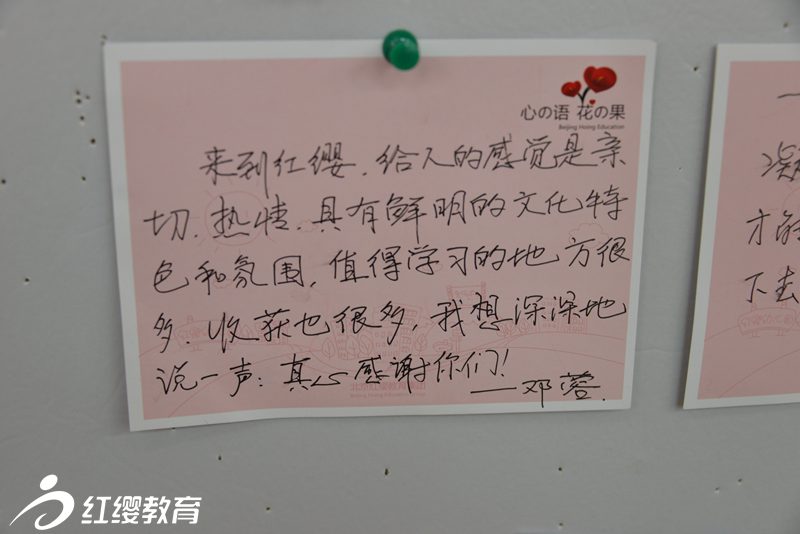 心の语 花の果
Beijing Hoing Education
来到红缨，给人的感觉是亲
切，热情，具有鲜明的文化特
色和氛围，值得学习的地方很
多，收获也很多，我想深深地
说一声：真心感谢你们！
——邓蓉.
才能
下去
红缨教育